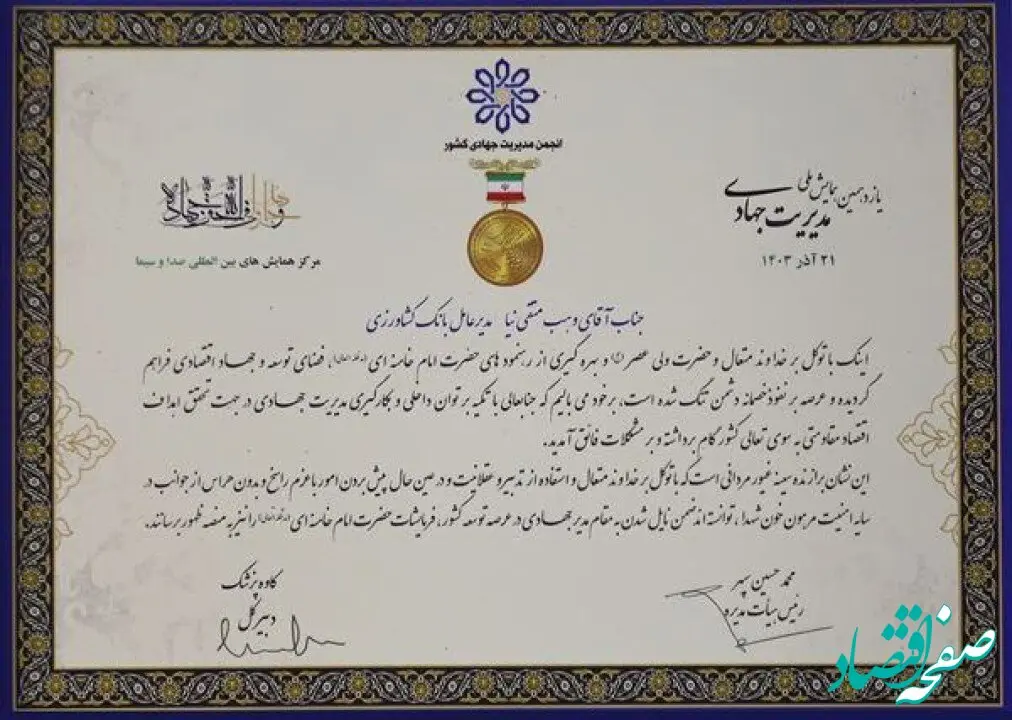 انجمن مدیریت جهادی کشور
یازدهمین همایش ملی
مدیریت جهادی
۲۱ آذر ۱۴۰۳
مرکز همایش های بین المللی صدا و سیما
جناب آقای وهب متقی نیا مدیرعامل بانک کشاورزی
اینک با توکل بر خداوند متعال و حضرت ولی عصر و بهره گیری از رهنمود های حضرت امام خامنه ای، فضای توسعه و جهاد اقتصادی فراهم
گردیده و عرصه بر نفوذ خصمانه دشمن تنگ شده است، بر خود می بالیم که جنابعالی با تکیه بر توان داخلی و بکارگیری مدیریت جهادی در جهت تحقق اهداف
اقتصاد مقاومتی به سوی تعالی کشور گام برداشته و بر مشکلات فائق آمدید.
این نشان برازنده سینه غیور مردانی است که با توکل بر خداوند متعال و استفاده از تدبیر و عقلانیت و در عین حال پیش بردن امور با عزم راسخ و بدون هراس از جوانب در
سایه امنیت مرهون خون شهدا، توانسته اند ضمن نایل شدن به مقام مدیر جهادی در عرصه توسعه کشور، فرمایشات حضرت امام خامنه ای را نیز به منصه ظهور برسانند.
محمد حسین سپهر
رئیس هیأت مدیره
کاوه پزشک
دبیر کل
صفحه اقتصاد